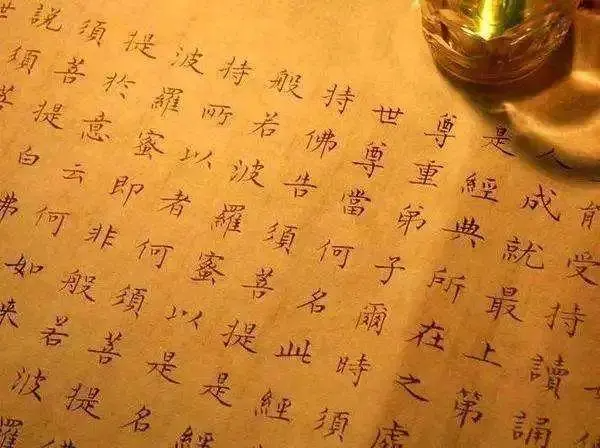 受持讀誦
人成就最上第
是經典所在之處
尊重弟子爾時須
世尊當何名此經
持佛告須菩提是
般若波羅蜜以是名
持所以者何須菩提佛
波羅蜜即非般若波羅
提於意云何如來
須菩提白佛
說須菩
世